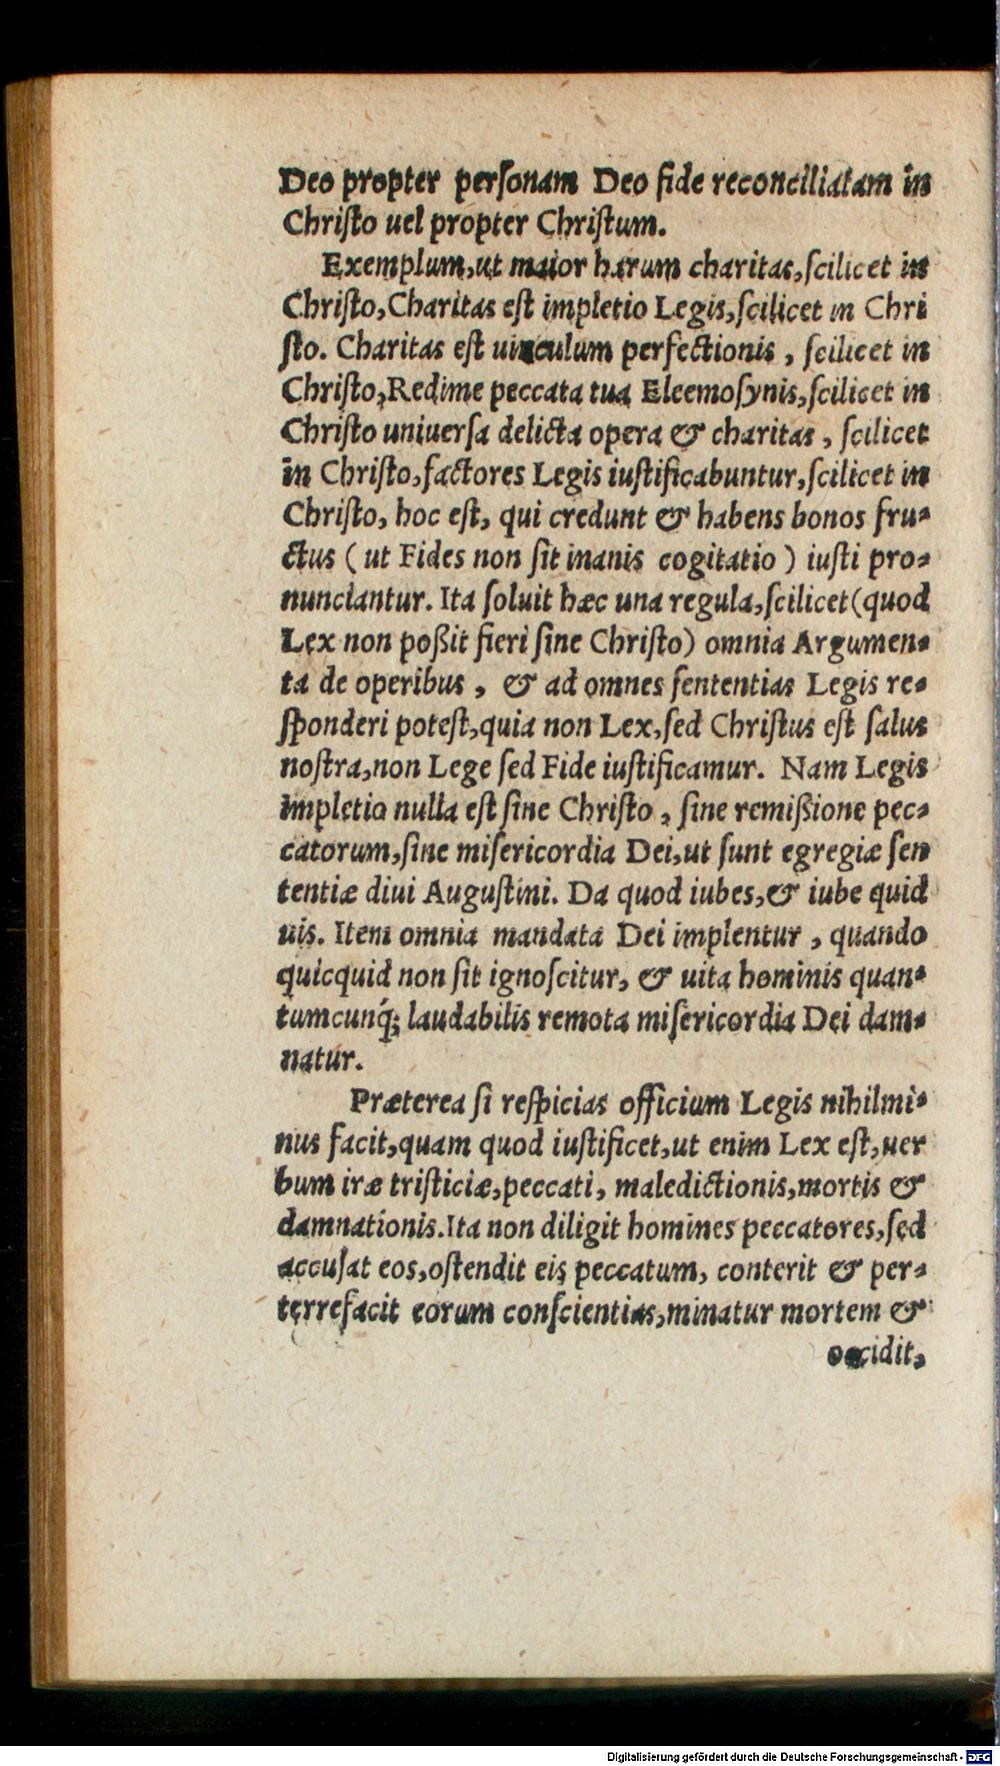 Deo propter perſonam Deo fide reconciliatam in
Chriſto uel propter Chriſtum.
Exemplum, ut maior harum charitas, ſcilicet in
Chriſto, Charitas eſt impletio Legis, ſcilicet in Chri
ſto. Charitas eſt uinculum perfectionis, ſcilicet in
Chriſto, Redime peccata tua Eleemoſynis, ſcilicet in
Chriſto uniuerſa delicta opera & charitas, ſcilicet
in Chriſto, factores Legis iuſtificabuntur, ſcilicet in
Chriſto, hoc eſt, qui credunt & habens bonos fru-
ctus ( ut Fides non ſit inanis cogitatio ) iuſti pro-
nunciantur. Ita ſoluit hæc una regula, ſcilicet (quod
Lex non poßit fieri ſine Chriſto) omnia Argumen-
ta de operibus, & ad omnes ſententias Legis re-
ſponderi poteſt, quia non Lex, ſed Chriſtus eſt ſalus
noſtra, non Lege ſed Fide iuſtificamur. Nam Legis
impletio nulla eſt ſine Chriſto, ſine remißione pec-
catorum, ſine miſericordia Dei, ut ſunt egregiæ ſen
tentiæ diui Auguſtini. Da quod iubes, & iube quid
uis. Item omnia mandata Dei implentur, quando
quicquid non ſit ignoſcitur, & uita hominis quan-
tumcunq́; laudabilis remota miſericordia Dei dam-
natur.
Præterea ſi reſpicias officium Legis nihilmi-
nus facit, quam quod iuſtificet, ut enim Lex eſt, uer
bum iræ triſticiæ, peccati, maledictionis, mortis &
damnationis. Ita non diligit homines peccatores, ſed
accuſat eos, oſtendit eis peccatum, conterit & per-
terrefacit eorum conſcientias, minatur mortem &
occidit,
Digitalisierung gefördert durch die Deutsche Forschungsgemeinschaft - DFG